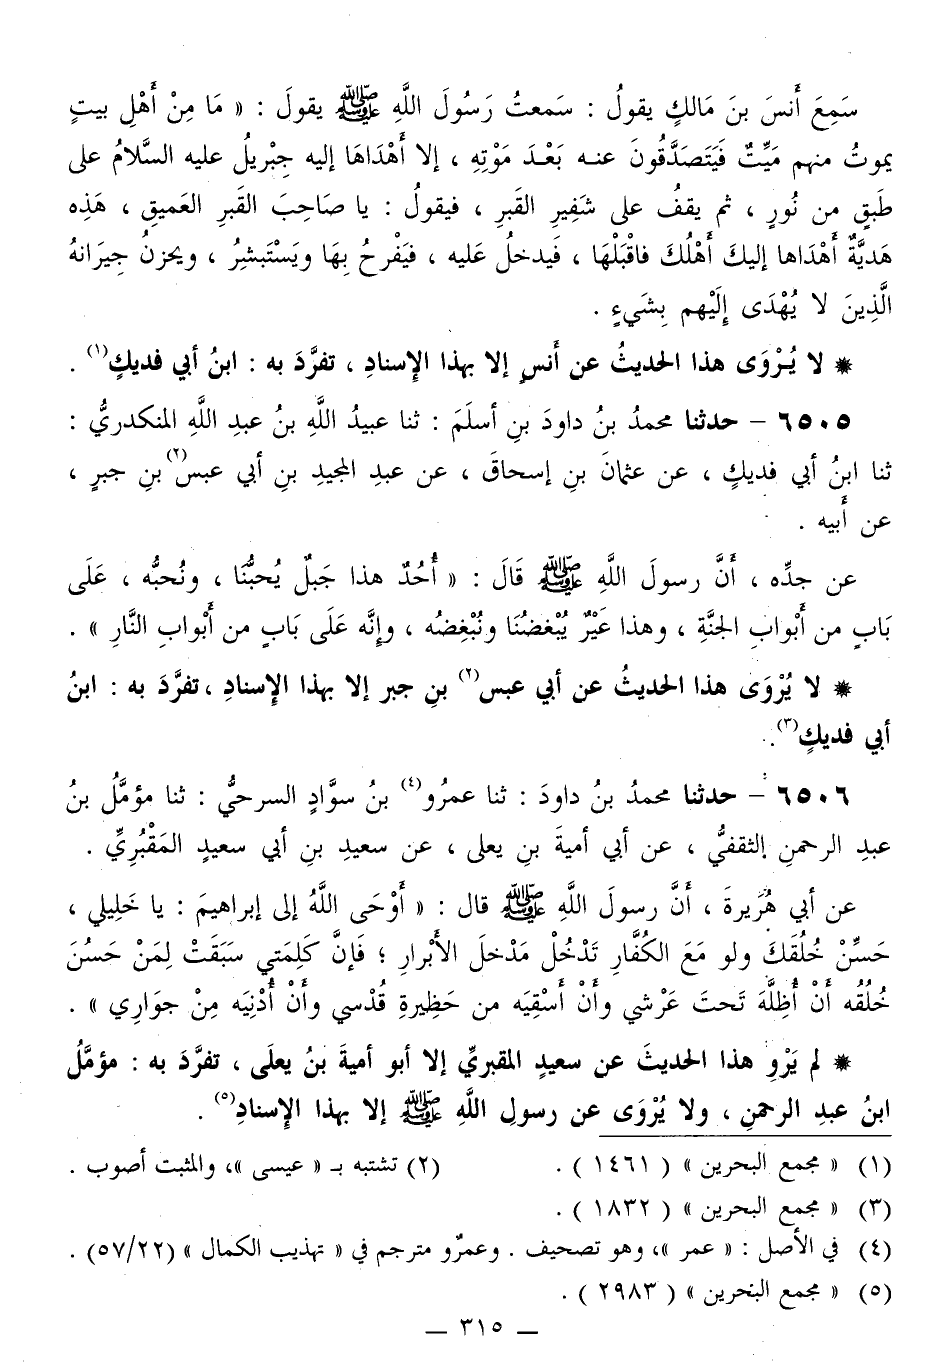 سَمِعَ أَنسَ بنَ مَالكٍ يقولُ : سَمعتُ رَسُولَ اللَّهِ ﷺ يقولَ : « مَا مِنْ أَهْلِ بيتٍ
يموتُ منهم مَيِّتٌ فَيَتَصَدَّقُونَ عنـه بَعْـدَ مَوْتِهِ ، إلا أَهْدَاهَا إليه جِبْريلُ عليه السَّلامُ على
طَبقٍ من نُورٍ ، ثم يقفُ على شَفِيرِ القَبرِ ، فيقولُ : يا صَاحِبَ القَبرِ العَميقِ ، هَذِه
هَديَّةٌ أَهْدَاها إليكَ أَهْلُكَ فاقْبَلْهَا ، فَيدخلُ عَليه ، فَيَفْرحُ بِهَا ويَسْتَبشِرُ ، ويحزنُ جيرَانهُ
الَّذِينَ لا يُهْدَى إِلَيْهم بِشَيءٍ .
* لا يُـرْوَى هذا الحديثُ عن أَنسٍ إلا بهذا الإِسنادِ ، تفرَّدَ به : ابنُ أبي فديكٍ(١) .
٦٥٠٥ – حدثنا محمدُ بنُ داودَ بنِ أسلَمَ : ثنا عبيدُ اللَّهِ بنُ عبدِ اللَّهِ المنكدريُّ :
ثنا ابنُ أبي فديكٍ ، عن عثمانَ بنِ إسحاقَ ، عن عبدِ المجيدِ بنِ أبي عبسٍ(٢) بنِ جبرٍ ،
عن أَبيه .
عن جدِّه ، أَنَّ رسولَ اللَّهِ ﷺ قَالَ : « أُحُدٌ هذا جَبلٌ يُحبُّنَا ، ونُحبُّه ، عَلَى
بَابٍ من أَبْوابِ الجنَّةِ ، وهذا عَيْرٌ يُبْغضُنَا ونُبْغِضُه ، وإِنَّه عَلَى بَابٍ من أَبْوابِ النَّارِ » .
* لا يُرْوَى هذا الحديثُ عن أبي عبس(٢) بنِ جبر إلا بهذا الإِسنادِ ، تفرَّدَ به : ابنُ
أبي فديكٍ(٣).
٦٥٠٦ – حدثنا محمدُ بنُ داودَ : ثنا عمرُو(٤) بنُ سوَّادٍ السرحيُّ : ثنا مؤمَّلُ بنُ
عبدِ الرحمنِ الثقفيُّ ، عن أبي أميةَ بنِ يعلى ، عن سعيدِ بنِ أبي سعيدٍ المَقْبُرِيِّ .
عن أبي هُرَيرةَ ، أَنَّ رسولَ اللَّهِ ﷺ قال : « أَوْحَى اللَّهُ إلى إبراهيمَ : يا خَليلي ،
حَسِّنْ خُلُقَكَ ولو مَعَ الكُفَّارِ تَدْخُلْ مَدْخلَ الأَبْرارِ ؛ فَإِنَّ كَلِمَتي سَبَقَتْ لِمَنْ حَسُنَ
خُلُقُه أَنْ أُظِلَّهَ تَحتَ عَرْشي وأَنْ أَسْقِيَه من حَظِيرةِ قُدْسي وأَنْ أُدْنِيَه مِنْ جوَارِي » .
* لم يَرْوِ هذا الحديثَ عن سعيدٍ المقبريِّ إلا أبو أميةَ بنُ يعلَى ، تفرَّدَ به : مؤمَّلُ
ابنُ عبدِ الرحمنِ ، ولا يُرْوَى عن رسولِ اللَّهِ ﷺ إلا بهذا الإِسنادِ(٥) .
(١) « مجمع البحرين » ( ١٤٦١ ) . (٢) تشتبه بـ « عيسى »، والمثبت أصوب .
(٣) « مجمع البحرين » ( ١٨٣٢ ) .
(٤) في الأصل : « عمر »، وهو تصحيف . وعمرٌو مترجم في « تهذيب الكمال » (٥٧/٢٢) .
(٥) « مجمع البحرين » ( ٢٩٨٣ ) .
— ٣١٥ —